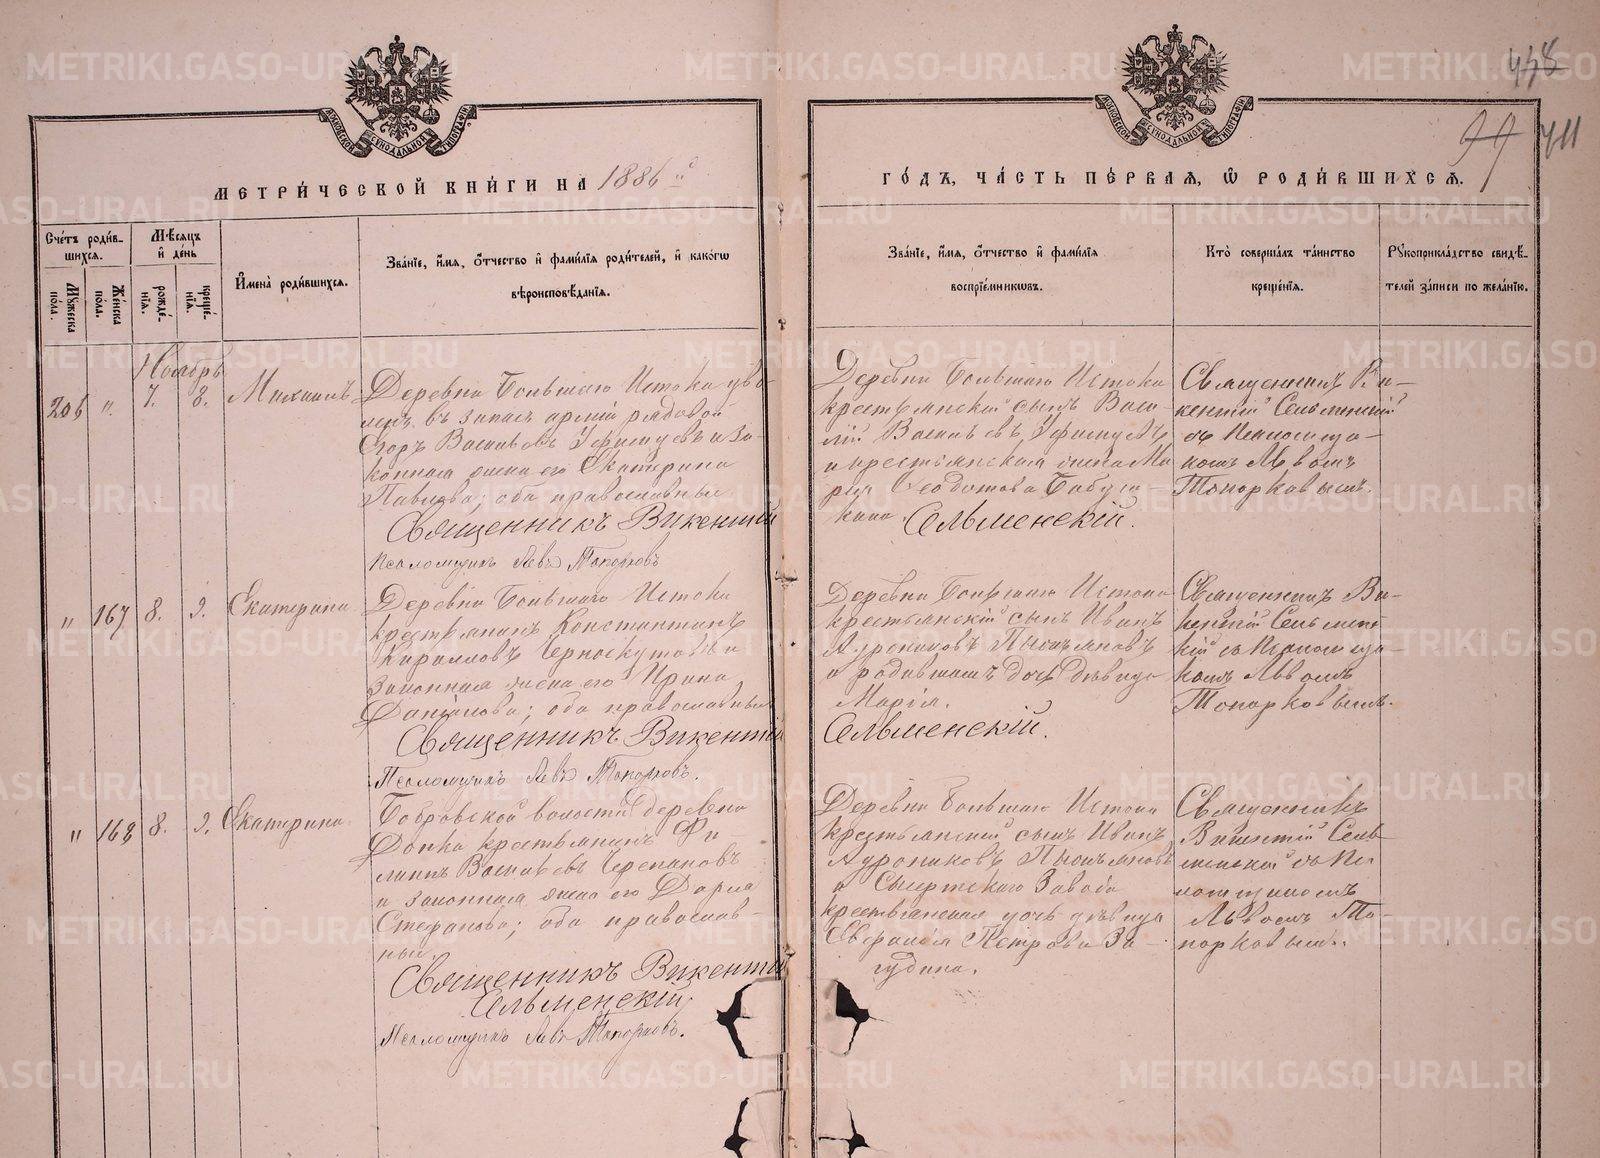 438
99 411
МЕТРИ́ЧЕСКОЙ КНИ́ГИ НА 1886 й
ГО́ДЪ, ЧА́СТЬ ПЕ́РВАЯ, Ѽ РОДИ́ВШИХСЯ.
Сче́тъ роди́в-
шихся.
Мѣ́сяцъ
и҆ де́нь
Му́жеска
по́ла.
Же́нска
по́ла.
рожде́-
нїя.
креще́-
нїя.
И҆мена̀ роди́вшихся.
Зва́нїе, и҆́мя, ѻ҆́тчество и҆ фами́лїя роди́телей, и҆ како́гѡ
вѣроисповѣ́данїя.
Зва́нїе, и҆́мя, ѻ҆́тчество и҆ фами́лїя
воспрїе́мникѡвъ.
Кто̀ соверша́лъ та́инство
креще́нїя.
Рꙋкоприкла́дство свидѣ́-
телей за́писи по жела́нїю.
Ноябрь
206 " 7. 8. Михаилъ
Деревни Большаго Истока уво-
лен. въ запасъ армiи рядовой
Егоръ Васильевъ Уфимцевъ и за-
конная жена его Екатерина
Павлова; оба православные
Священникъ Викентiй
Псаломщикъ Левъ Топорковъ
Деревни Большаго Истока
крестьянскiй сынъ Васи-
лiй Васильевъ Уфимцевъ
и крестьянская жена Ма
рiя Ѳеодотова Бабуш-
кина. Сельменскiй.
Священникъ Ви-
кентiй Сельменскiй
съ псаломщи-
комъ Львомъ
Топорковымъ.
" 167 8. 9. Екатерина
Деревни Большаго Истока
крестьянинъ Константинъ
Кирилловъ Черноскутовъ и
законная жена его Ирина
оба православные
Священникъ Викентiй
Псаломщикъ Левъ Топорковъ.
Деревни Большаго Истока
крестьянскiй сынъ Иванъ
Андрониковъ Пьянковъ
и родившаго дочь дѣвица
Марiя.
Сельменскiй.
Священникъ Ви-
кентiй Сельмен-
скiй съ псаломщи-
комъ Львомъ
Топорковымъ.
" 168 8. 9. Екатерина
Бобровской волости деревни
крестьянинъ Фи-
липпъ Васильевъ Черепановъ
и законная жена его Дарья
Стефанова; оба православ-
ные.
Священникъ Викентiй
Сельменскiй
Псаломщикъ Левъ Топорковъ.
Деревни Большаго Истока
крестьянскiй сынъ Иванъ
Андрониковъ Пьянковъ
и Сысертскаго Завода
крестьянская дочь дѣвица
Петрова За-
гудина.
Священникъ
Викентiй Сель-
менскiй съ пса
ломщикомъ
Львомъ То-
порковымъ.
METRIKI.GASO-URAL.RU